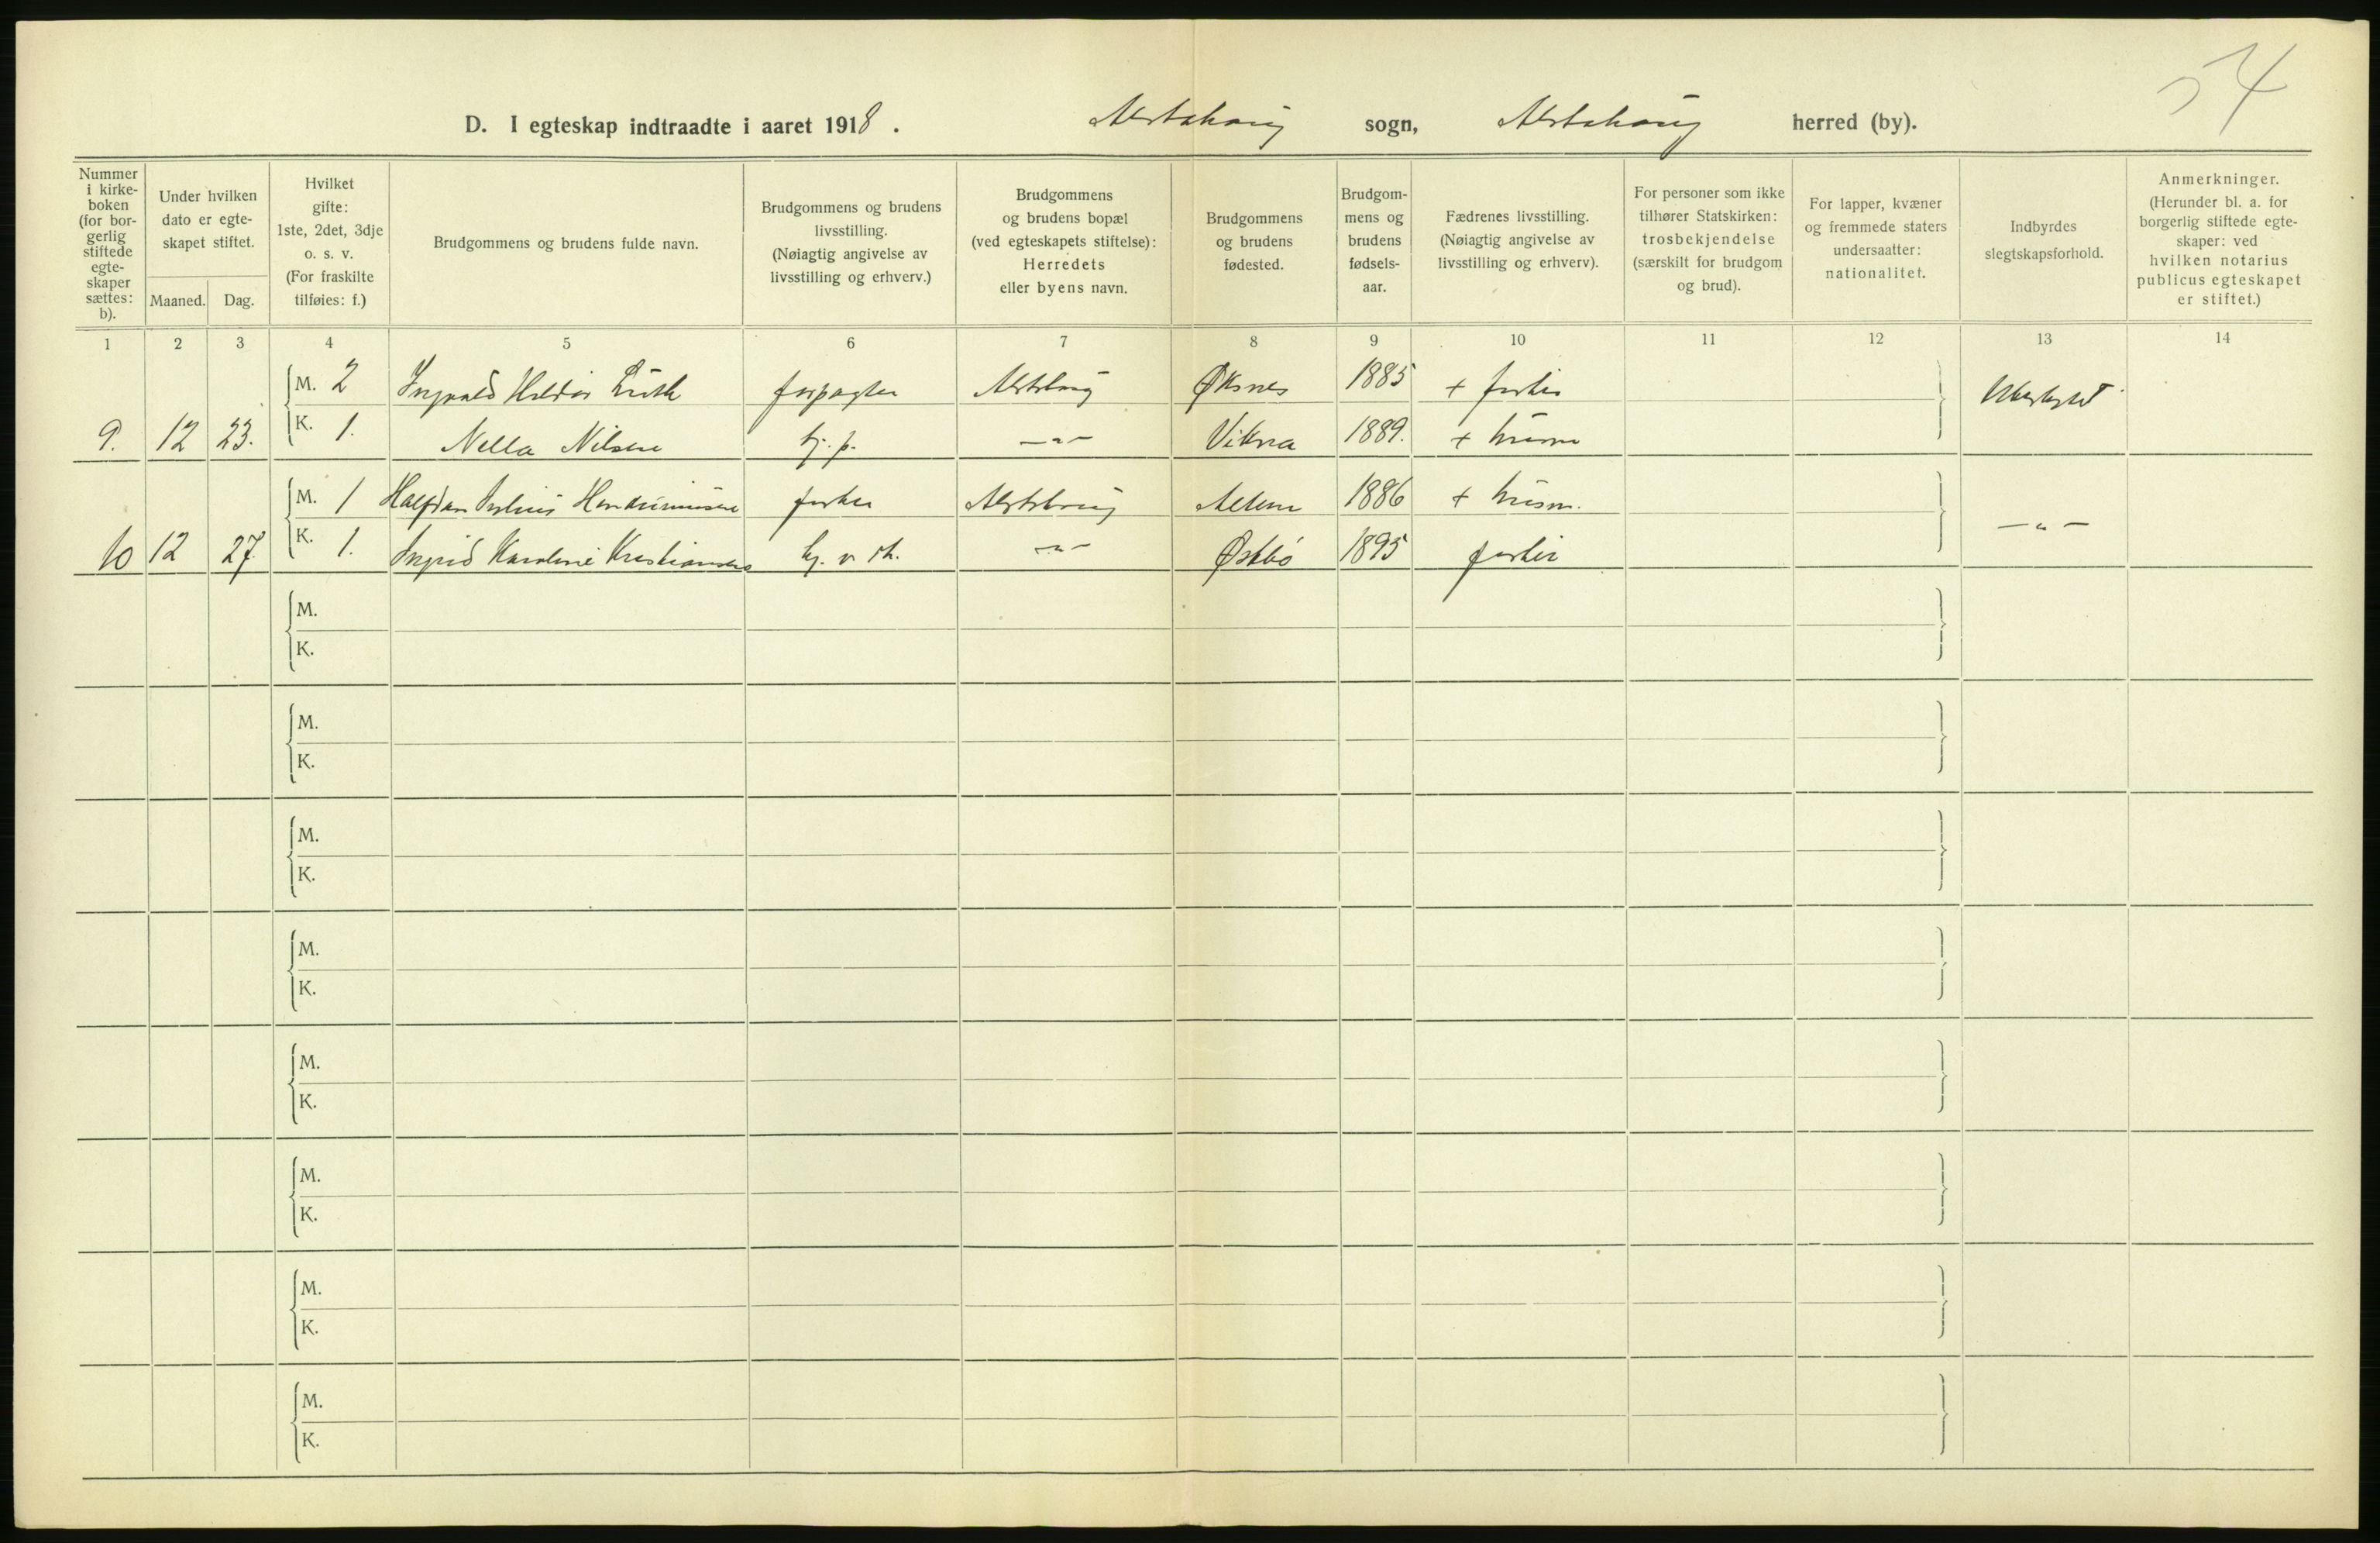 54
D. I egteskap indtraadte i aaret 1918. Alstahaug sogn, Alstahaug herred (by).
Nummer i kirke-boken (for bor-gerlig stiftede egte-skaper sættes: b).
Under hvilken dato er egte-skapet stiftet.
Maaned. Dag.
Hvilket gifte: 1ste, 2det, 3dje o. s. v. (For fraskilte tilføies: f.)
Brudgommens og brudens fulde navn.
Brudgommens og brudens livsstilling. (Nøiagtig angivelse av livsstilling og erhverv.)
Brudgommens og brudens bopæl (ved egteskapets stiftelse): Herredets eller byens navn.
Brudgommens og brudens fødested.
Brudgom-mens og brudens fødsels-aar.
Fædrenes livsstilling. (Nøiagtig angivelse av livsstilling og erhverv).
For personer som ikke tilhører Statskirken: trosbekjendelse (særskilt for brudgom og brud).
For lapper, kvæner og fremmede staters undersaatter: nationalitet.
Indbyrdes slegtskapsforhold.
Anmerkninger. (Herunder bl. a. for borgerlig stiftede egte-skaper: ved hvilken notarius publicus egteskapet er stiftet.)
1 2 3 4 5 6 7 8 9 10 11 12 13 14
M. 2 Ingvald forpagter Alstahaug Øksnes 1885 + fisker Ubeslegtet
9. 12 23. K. 1. Nella Nilsen hj. p. —"— Vikna 1889. + husm
M. 1 Halfdan Julius fisker Alstahaug 1886 + husm.
10 12 27. K. 1. Ingrid Karoline Kristiansen 1895 fisker —"—
M.
K.
M.
K.
M.
K.
M.
K.
M.
K.
M.
K.
M.
K.
M.
K.